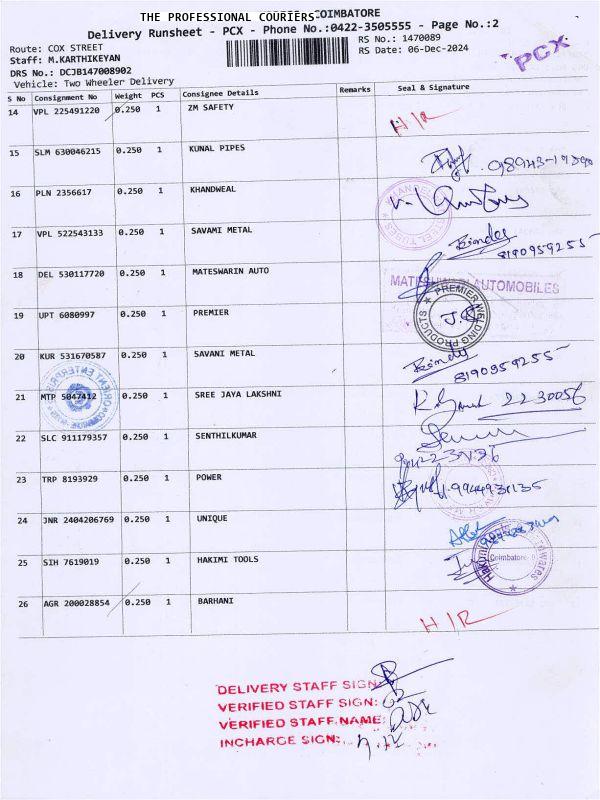 THE PROFESSIONAL COURIERS COIMBATORE
Delivery Runsheet - PCX - Phone No.:0422-3505555 - Page No.:2
Route: COX STREET
RS No.: 1470089
PCX
Staff: M.KARTHIKEYAN
RS Date: 06-Dec-2024
DRS No.: DCJB147008902
Vehicle: Two Wheeler Delivery
S No Consignment No Weight PCS Consignee Details Remarks Seal & Signature
14 VPL 225491220 0.250 1 ZM SAFETY H/R
15 SLM 630046215 0.250 1 KUNAL PIPES
16 PLN 2356617 0.250 1 KHANDWEAL
STEEL TUBES
17 VPL 522543133 0.250 1 SAVAMI METAL 8190959255
18 DEL 530117720 0.250 1 MATESWARIN AUTO
MATESHWARI AUTOMOBILES
19 UPT 6080997 0.250 1 PREMIER
PREMIER WELDING PRODUCTS
20 KUR 531670587 0.250 1 SAVANI METAL 8190959255
21 MTP 5047412 0.250 1 SREE JAYA LAKSHNI 2230056
22 SLC 911179357 0.250 1 SENTHILKUMAR
23 TRP 8193929 0.250 1 POWER 9944931135
24 JNR 2404206769 0.250 1 UNIQUE
25 SIH 7619019 0.250 1 HAKIMI TOOLS
Coimbatore
26 AGR 200028854 0.250 1 BARHANI H/R
DELIVERY STAFF SIGN:
VERIFIED STAFF SIGN:
VERIFIED STAFF NAME:
INCHARGE SIGN: